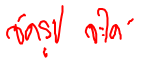 จัดรูป จะได้